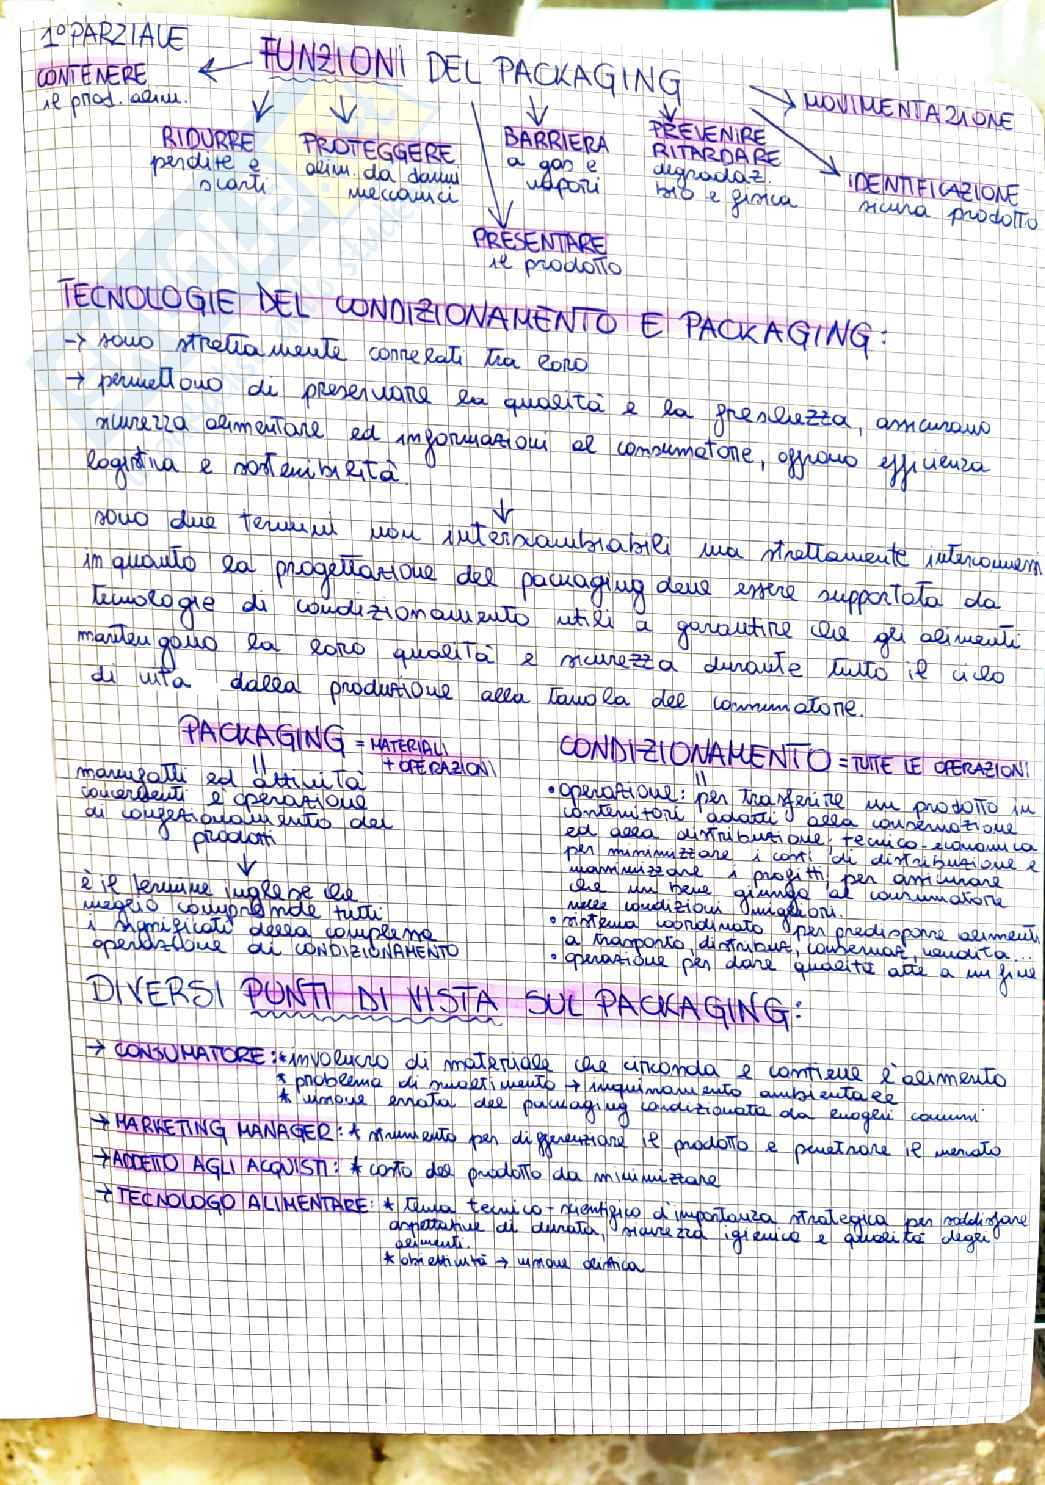 1° PARZIALE
FUNZIONI DEL PACKAGING
CONTENERE
il prod. alim.
RIDURRE
perdite e
scarti
PROTEGGERE
alim. da danni
meccanici
PRESENTARE
il prodotto
BARRIERA
a gas e
vapori
PREVENIRE
RITARDARE
degradaz.
bio e fisica
MOVIMENTAZIONE
IDENTIFICAZIONE
sicura prodotto
TECNOLOGIE DEL CONDIZIONAMENTO E PACKAGING:
→ sono strettamente correlati tra loro
→ permettono di preservare la qualità e la freschezza, assicurano
sicurezza alimentare ed informazioni al consumatore, offrono efficienza
logistica e sostenibilità.
↓
sono due termini non interscambiabili ma strettamente interconnessi
in quanto la progettazione del packaging deve essere supportata da
tecnologie di condizionamento utili a garantire che gli alimenti
mantengano la loro qualità e sicurezza durante tutto il ciclo
di vita dalla produzione alla tavola del consumatore.
PACKAGING = MATERIALI
+ OPERAZIONI
manufatti ed attività
concernenti l'operazione
di confezionamento dei
prodotti
↓
è il termine inglese che
meglio comprende tutti
i significati della complessa
operazione di CONDIZIONAMENTO
CONDIZIONAMENTO = TUTTE LE OPERAZIONI
• operazione: per trasferire un prodotto in
contenitori adatti alla conservazione
ed alla distribuzione; tecnico-economica
per minimizzare i costi di distribuzione e
massimizzare i profitti; per assicurare
che un bene giunga al consumatore
nelle condizioni migliori.
• sistema coordinato per predisporre alimenti
a trasporto, distribuz, conservaz, vendita...
• operazione per dare qualità atte a un fine
DIVERSI PUNTI DI VISTA SUL PACKAGING:
→ CONSUMATORE: * involucro di materiale che circonda e contiene l'alimento
* problema di smaltimento → inquinamento ambientale
* visione errata del packaging condizionata da luoghi comuni
→ MARKETING MANAGER: * strumento per differenziare il prodotto e penetrare il mercato
→ ADDETTO AGLI ACQUISTI: * costo del prodotto da minimizzare
→ TECNOLOGO ALIMENTARE: * tema tecnico-scientifico d'importanza strategica per soddisfare
aspettative di durata, sicurezza igienica e qualità degli
alimenti.
* obiettività → visione olistica